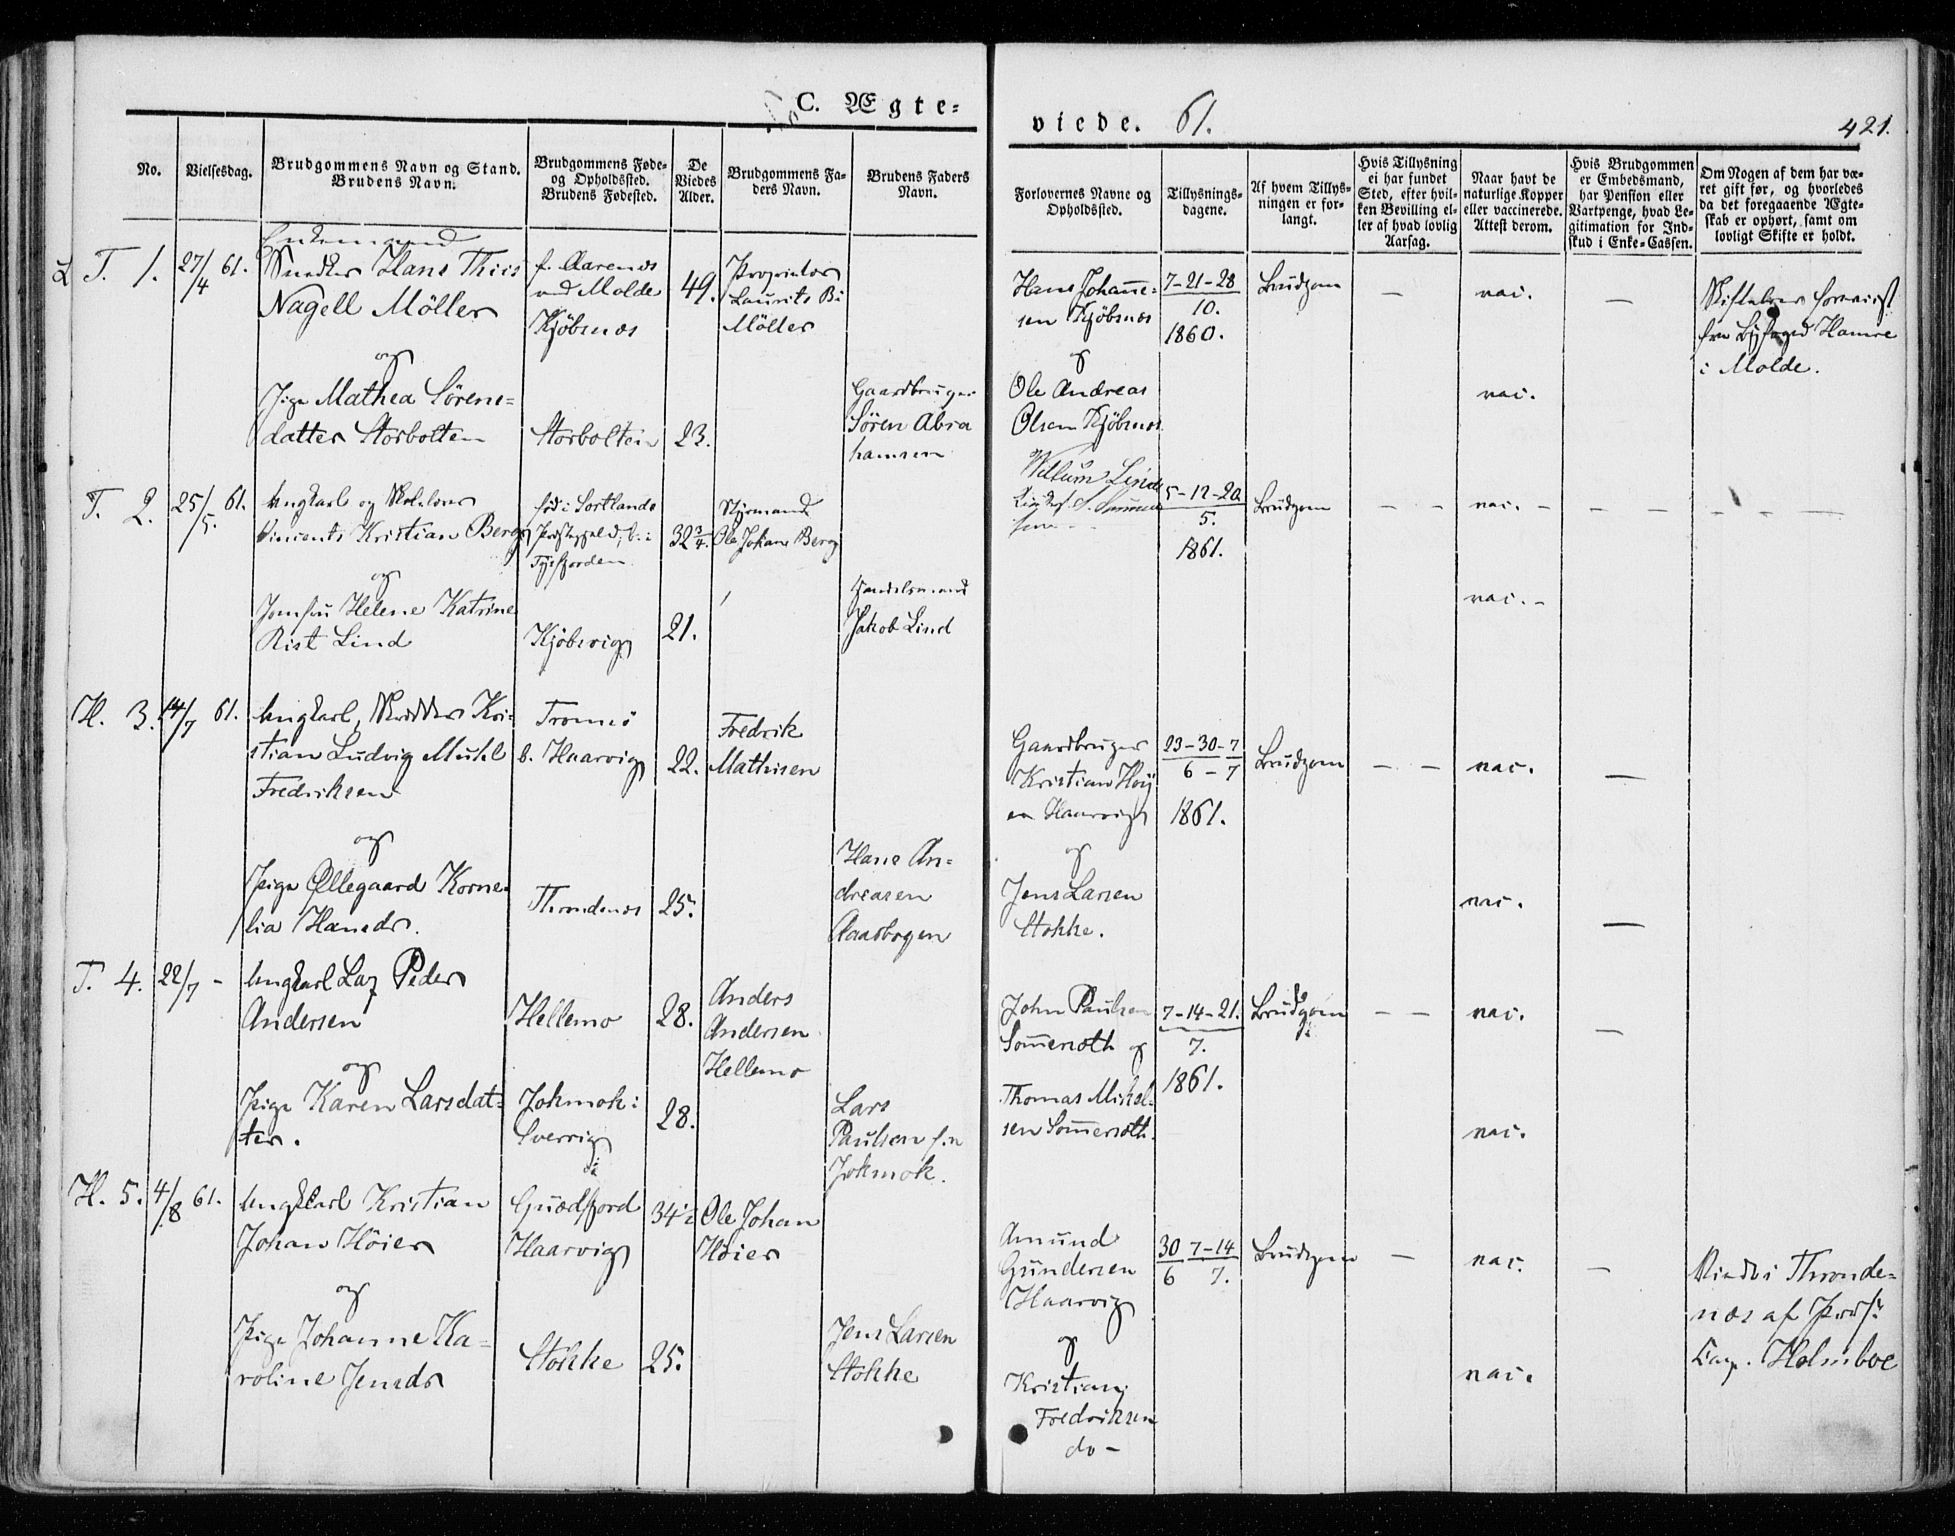 C. Ægte-
viede. 61.
421.
No.
Vielsesdag.
Brudgommens Navn og Stand.
Brudens Navn.
Brudgommens Føde-
og Opholdssted.
Brudens Fødested.
De
Viedes
Alder.
Brudgommens Fa-
ders Navn.
Brudens Faders
Navn.
Forlovernes Navne og
Opholdssted.
Tillysnings-
dagene.
Af hvem Tillys-
ningen er for-
langt.
Hvis Tillysning
ei har fundet
Sted, efter hvil-
ken Bevilling el-
ler af hvad lovlig
Aarsag.
Naar havt de
naturlige Kopper
eller vaccinerede.
Attest derom.
Hvis Brudgommen
er Embedsmand,
har Pension eller
Vartpenge, hvad Le-
gitimation for Ind-
skud i Enke-Cassen.
Om Nogen af dem har væ-
ret gift før, og hvorledes
da det foregaaende Ægte-
skab er ophørt, samt om
lovligt Skifte er holdt.
T. 1.
27/4 61.
Enkemand
Snedker Hans Thiis
Nagell Möller
og
Pige Mathea Sörens-
datter Storbolten
f. Aarenes
ved Molde
Kjöbsnes
Storbolten
49.
23.
Proprietær
Laurits Bi
Möller
Gaardbruger
Sören Abra
hamsen
Hans Johanne-
sen Kjöbsnes
og
Ole Andreas
Olsen Kjöbsnes
7-21-28
10.
1860.
Brudgom
—
vac.
vac.
—
Skifteb
fra Byfoged Hamre
i Molde.
T. 2.
25/5. 61.
Ungkarl og Skolelærer
Vincents Kristian Berg
og
Jomfru Helene Katrine
Rist Lind
föd i Sortlands
Præstegjeld, b. i
Tysfjorden
Kjöbsvig
32 3/4.
21.
Styrmand
Ole Johan Berg
Handelsmand
Jakob Lind
Villum Lind
5-12-20
5.
1861.
Brudgom
- -
vac. -
vac. -
H. 3.
14/7 61.
Ungkarl, Skrædder Kri-
stian Ludvig Muhl
Fredriksen
og
Pige Øllegaard Korne-
lia Hansdr.
Tromsö
b. Haarvig
Throndenes
22.
25.
Fredrik
Mathisen
Hans An-
dreasen
Aasbogen
Gaardbruger
Kristian Höy
er Haarvig
og
Jens Larsen
Stokke.
23-30-7
6 - 7
1861.
Brudgom
- -
vac.
vac.
—
—
T. 4.
22/7 -
Ungkarl Lar Peder
Andersen
og
Pige Karen Larsdat-
ter.
Hellemo
Jokmok i
Sverrig
28.
28.
Anders
Andersen
Hellemo
Lars
Paulsen fra
Jokmok.
John Paulsen
Sommersæth og
Thomas Mikel-
sen Sommersæth.
7-14-21.
7.
1861.
Brudgom
- -
vac.
vac.
—
H. 5.
4/8 61.
Ungkarl Kristian
Johan Höier
og
Pige Johanne Ka-
roline Jensdr
Qvædfjord
Haarvig
Stokke
34½
25.
Ole Johan
Höier
Jens Larsen
Stokke
Amund
Gundersen
Haarvig
og
Kristian
Fredriksen
do -
30 7-14
6 7.
Brudgom
—
vac.
vac.
—
Viede i Thronde-
næs af Pers.
Cap. Holmboe